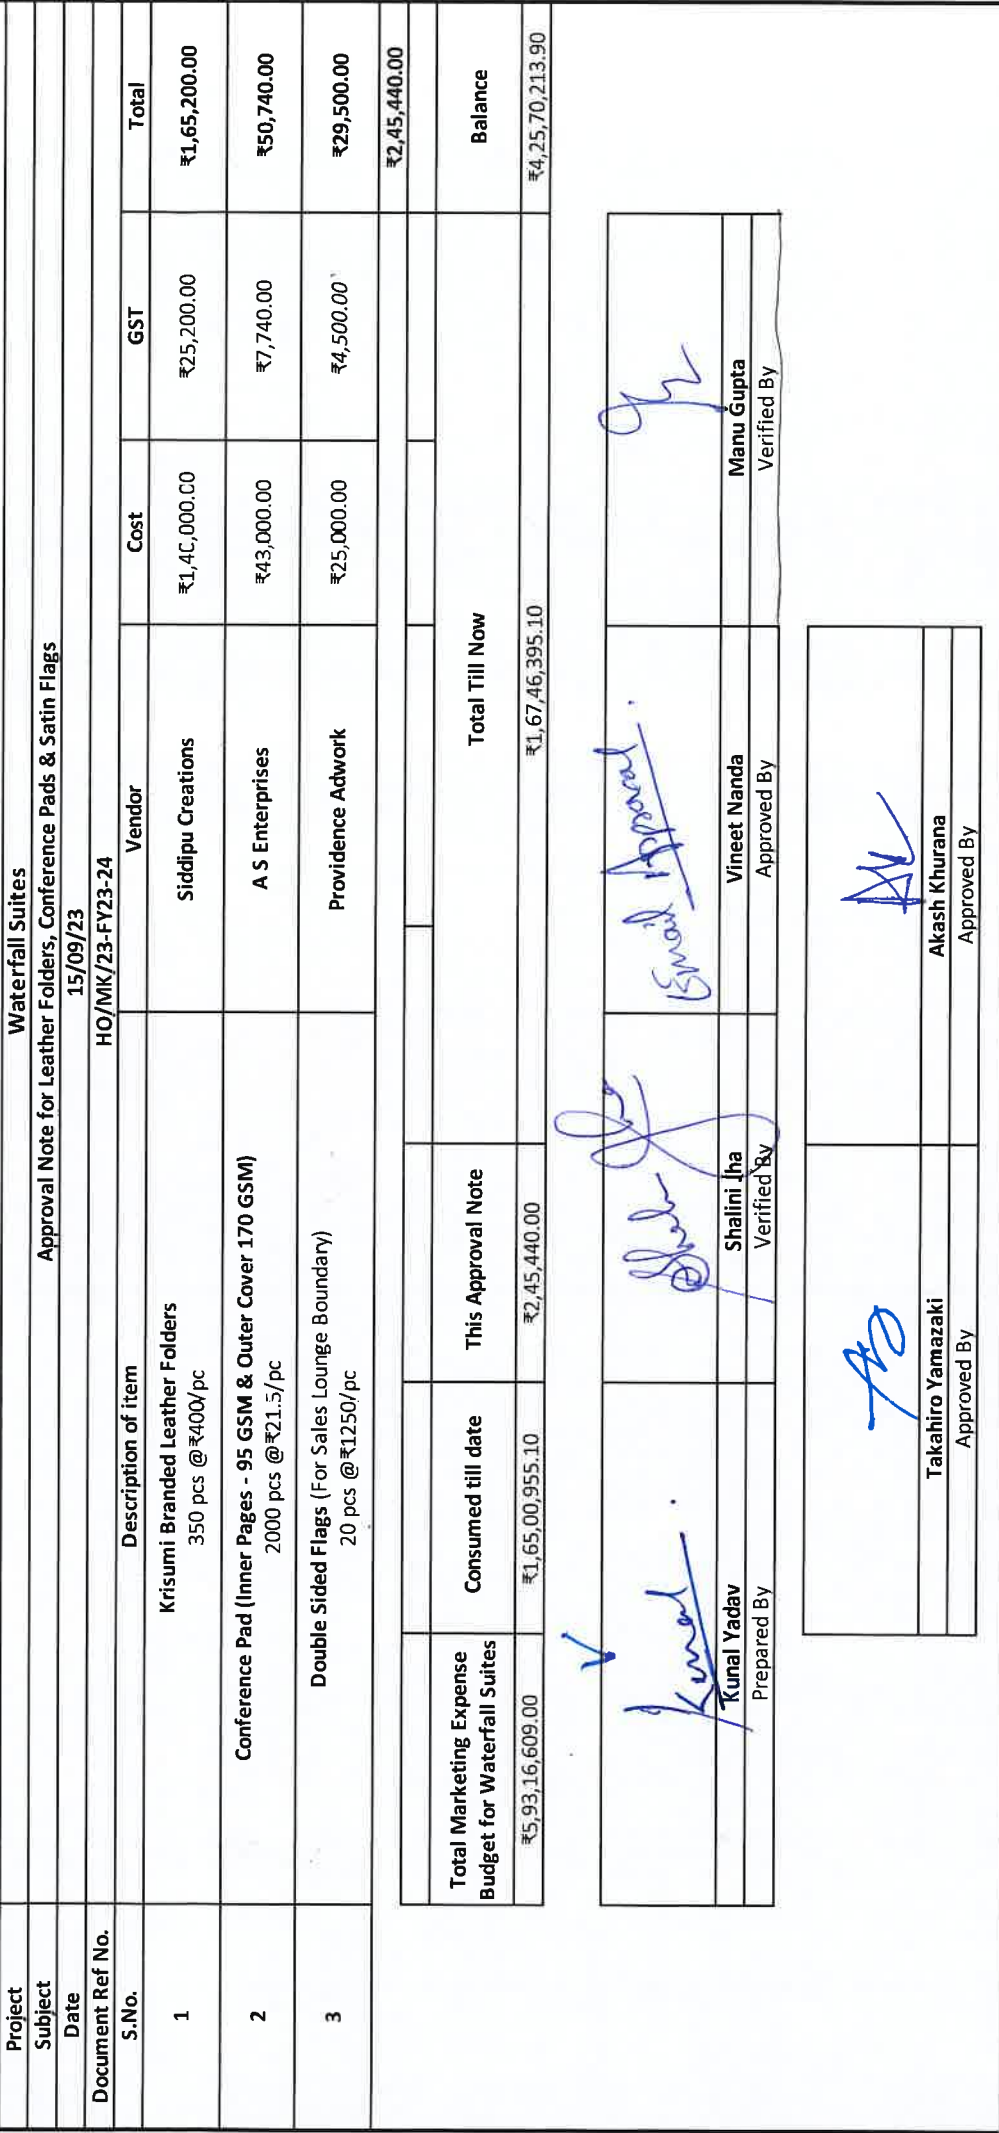 Project Waterfall Suites
Subject Approval Note for Leather Folders, Conference Pads & Satin Flags
Date 15/09/23
Document Ref No. HO/MK/23-FY23-24
S.No. Description of item Vendor Cost GST Total
1 Krisumi Branded Leather Folders Siddipu Creations ₹1,40,000.00 ₹25,200.00 ₹1,65,200.00
350 pcs @₹400/pc
2 Conference Pad (Inner Pages - 95 GSM & Outer Cover 170 GSM) A S Enterprises ₹43,000.00 ₹7,740.00 ₹50,740.00
2000 pcs @₹21.5/pc
3 Double Sided Flags (For Sales Lounge Boundary) Providence Adwork ₹25,000.00 ₹4,500.00 ₹29,500.00
20 pcs @₹1250/pc
₹2,45,440.00
Total Marketing Expense Budget for Waterfall Suites Consumed till date This Approval Note Total Till Now Balance
₹5,93,16,609.00 ₹1,65,00,955.10 ₹2,45,440.00 ₹1,67,46,395.10 ₹4,25,70,213.90
Kunal Email Approval
Kunal Yadav Shalini Jha Vineet Nanda Manu Gupta
Prepared By Verified By Approved By Verified By
Takahiro Yamazaki Akash Khurana
Approved By Approved By